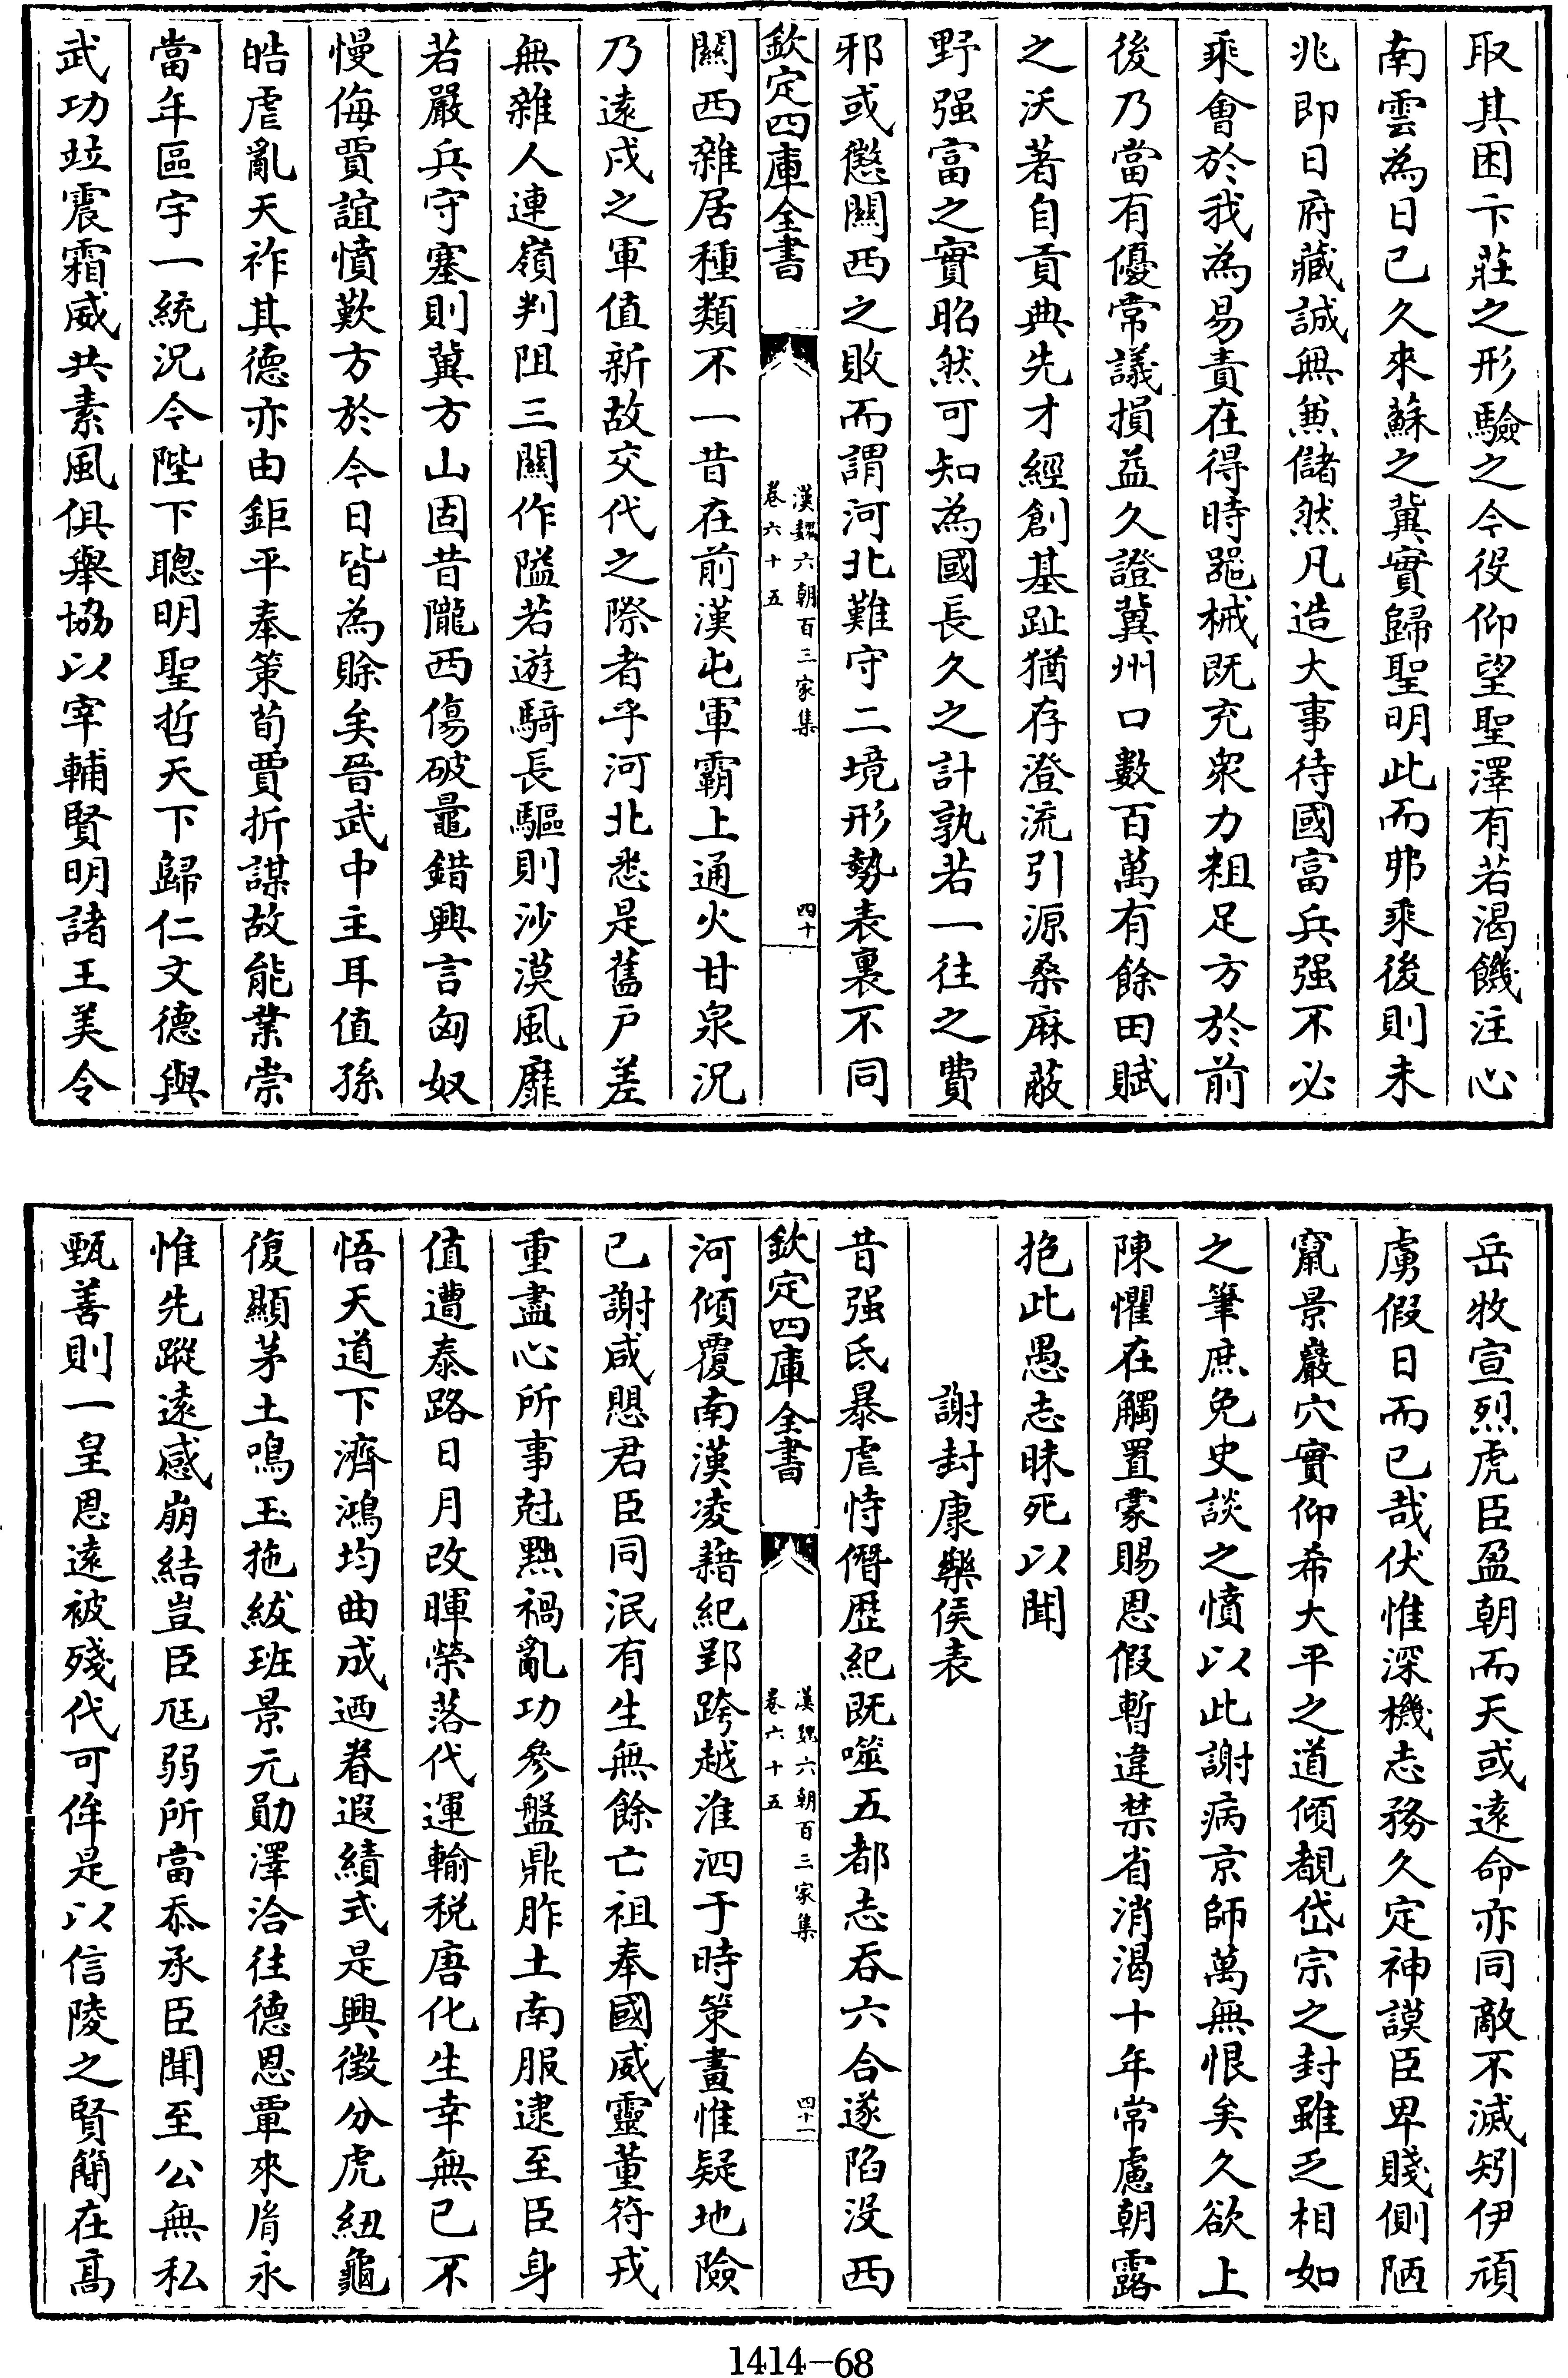 取其困卞莊之形驗之今役仰望聖澤有若渴饑注心
南雲為日已久來蘇之冀實歸聖明此而弗乘後則未
兆即日府藏誠無兼儲然凡造大事待國富兵强不必
乘會於我為易責在得時器械既充衆力粗足方於前
後乃當有優常議損益久證冀州口數百萬有餘田賦
之沃著自貢典先才經創基趾猶存澄流引源桑麻蔽
野强富之實昭然可知為國長久之計孰若一往之費
邪或懲關西之敗而謂河北難守二境形勢表裏不同
欽定四庫全書
漢魏六朝百三家集
卷六十五
四十
關西雜居種類不一昔在前漢屯軍霸上通火甘泉況
乃遠戍之軍值新故交代之際者乎河北悉是舊戶差
無雜人連嶺判阻三關作隘若遊騎長驅則沙漠風靡
若嚴兵守塞則冀方山固昔隴西傷破鼂錯興言匈奴
慢侮賈誼憤歎方於今日皆為賒矣晉武中主耳值孫
皓虐亂天祚其德亦由鉅平奉策荀賈折謀故能業崇
當年區宇一統況今陛下聰明聖哲天下歸仁文德與
武功竝震霜威共素風俱舉協以宰輔賢明諸王美令
岳牧宣烈虎臣盈朝而天或遠命亦同敵不滅矧伊頑
虜假日而已哉伏惟深機志務久定神謨臣卑賤側陋
竄景巖穴實仰希大平之道傾覩岱宗之封雖乏相如
之筆庶免史談之憤以此謝病京師萬無恨矣久欲上
陳懼在觸置蒙賜恩假暫違禁省消渴十年常慮朝露
抱此愚志昧死以聞
謝封康樂侯表
昔强氐暴虐恃僭歷紀既噬五都志吞六合遂陷没西
欽定四庫全書
漢魏六朝百三家集
卷六十五
四十一
河傾覆南漢凌藉紀郢跨越淮泗于時策畫惟疑地險
已謝咸懇君臣同泯有生無餘亡祖奉國威靈董符戎
重盡心所事尅黜禍亂功參盤鼎胙土南服逮至臣身
值遭泰路日月改暉榮落代運輸税唐化生幸無已不
悟天道下濟鴻均曲成迺眷遐績式是興徵分虎紐龜
復顯茅土鳴玉拖紱班景元勛澤洽往德恩覃來胤永
惟先蹤遠感崩結豈臣尫弱所當忝承臣聞至公無私
甄善則一皇恩遠被殘代可侔是以信陵之賢簡在髙
1414-68